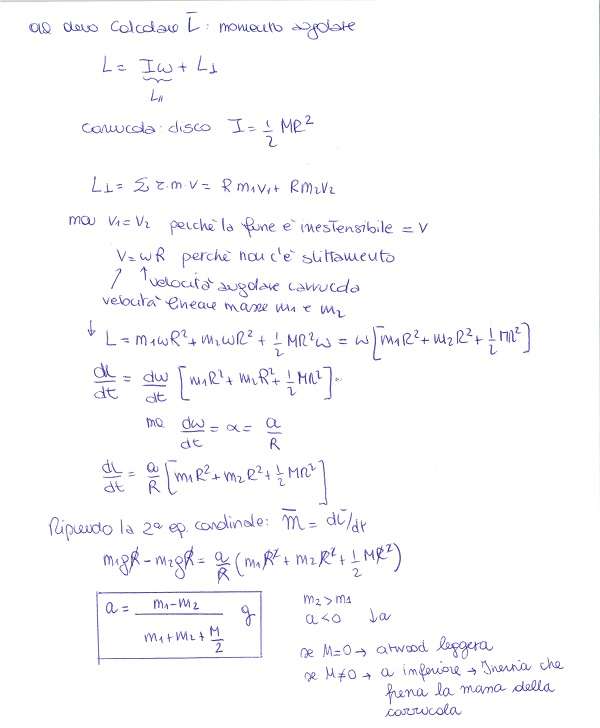 ora devo calcolare L̄: momento angolare
L = Iω + L⊥
L∥
carrucola: disco I = 1/2 MR²
L⊥ = Σ r·m·v = R m₁v₁ + R m₂v₂
ma v₁ = v₂ perchè la fune è inestensibile = v
v = ωR perchè non c'è slittamento
velocità angolare carrucola
velocità lineare masse m₁ e m₂
↓ L = m₁ωR² + m₂ωR² + 1/2 MR²ω = ω[m₁R² + m₂R² + 1/2 MR²]
dL/dt = dω/dt [m₁R² + m₂R² + 1/2 MR²].
ma dω/dt = α = a/R
dL/dt = a/R [m₁R² + m₂R² + 1/2 MR²]
Riprendo la 2ª eq. cardinale: M̄ = dL̄/dt
m₁gR − m₂gR = a/R (m₁R² + m₂R² + 1/2 MR²)
a = (m₁ − m₂)/(m₁ + m₂ + M/2) g
m₂ > m₁
a < 0 ↓a
se M = 0 → atwood leggera
se M ≠ 0 → a inferiore → Inerzia che
frena la massa della
carrucola